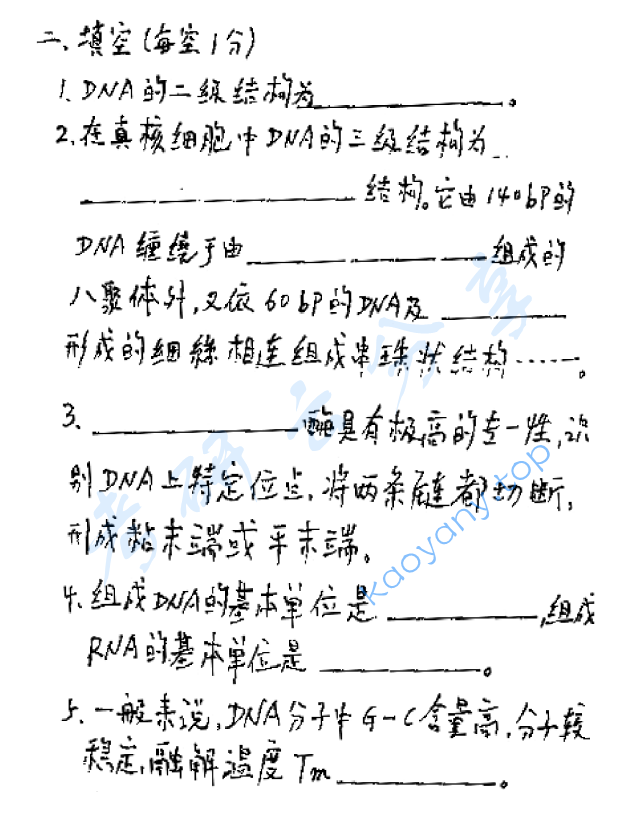 二、填空(每空1分)
1. DNA的二级结构为____________。
2. 在真核细胞中DNA的三级结构为
____________结构。它由140bp的
DNA缠绕于由____________组成的
八聚体外,又依60bp的DNA及________
形成的细丝相连组成串珠状结构……。
3. ____________酶具有极高的专一性,识
别DNA上特定位点,将两条链都切断,
形成粘末端或平末端。
4. 组成DNA的基本单位是________,组成
RNA的基本单位是________。
5. 一般来说,DNA分子中G-C含量高,分子较
稳定,融解温度Tm________。
考研云分享
kaoyany.top